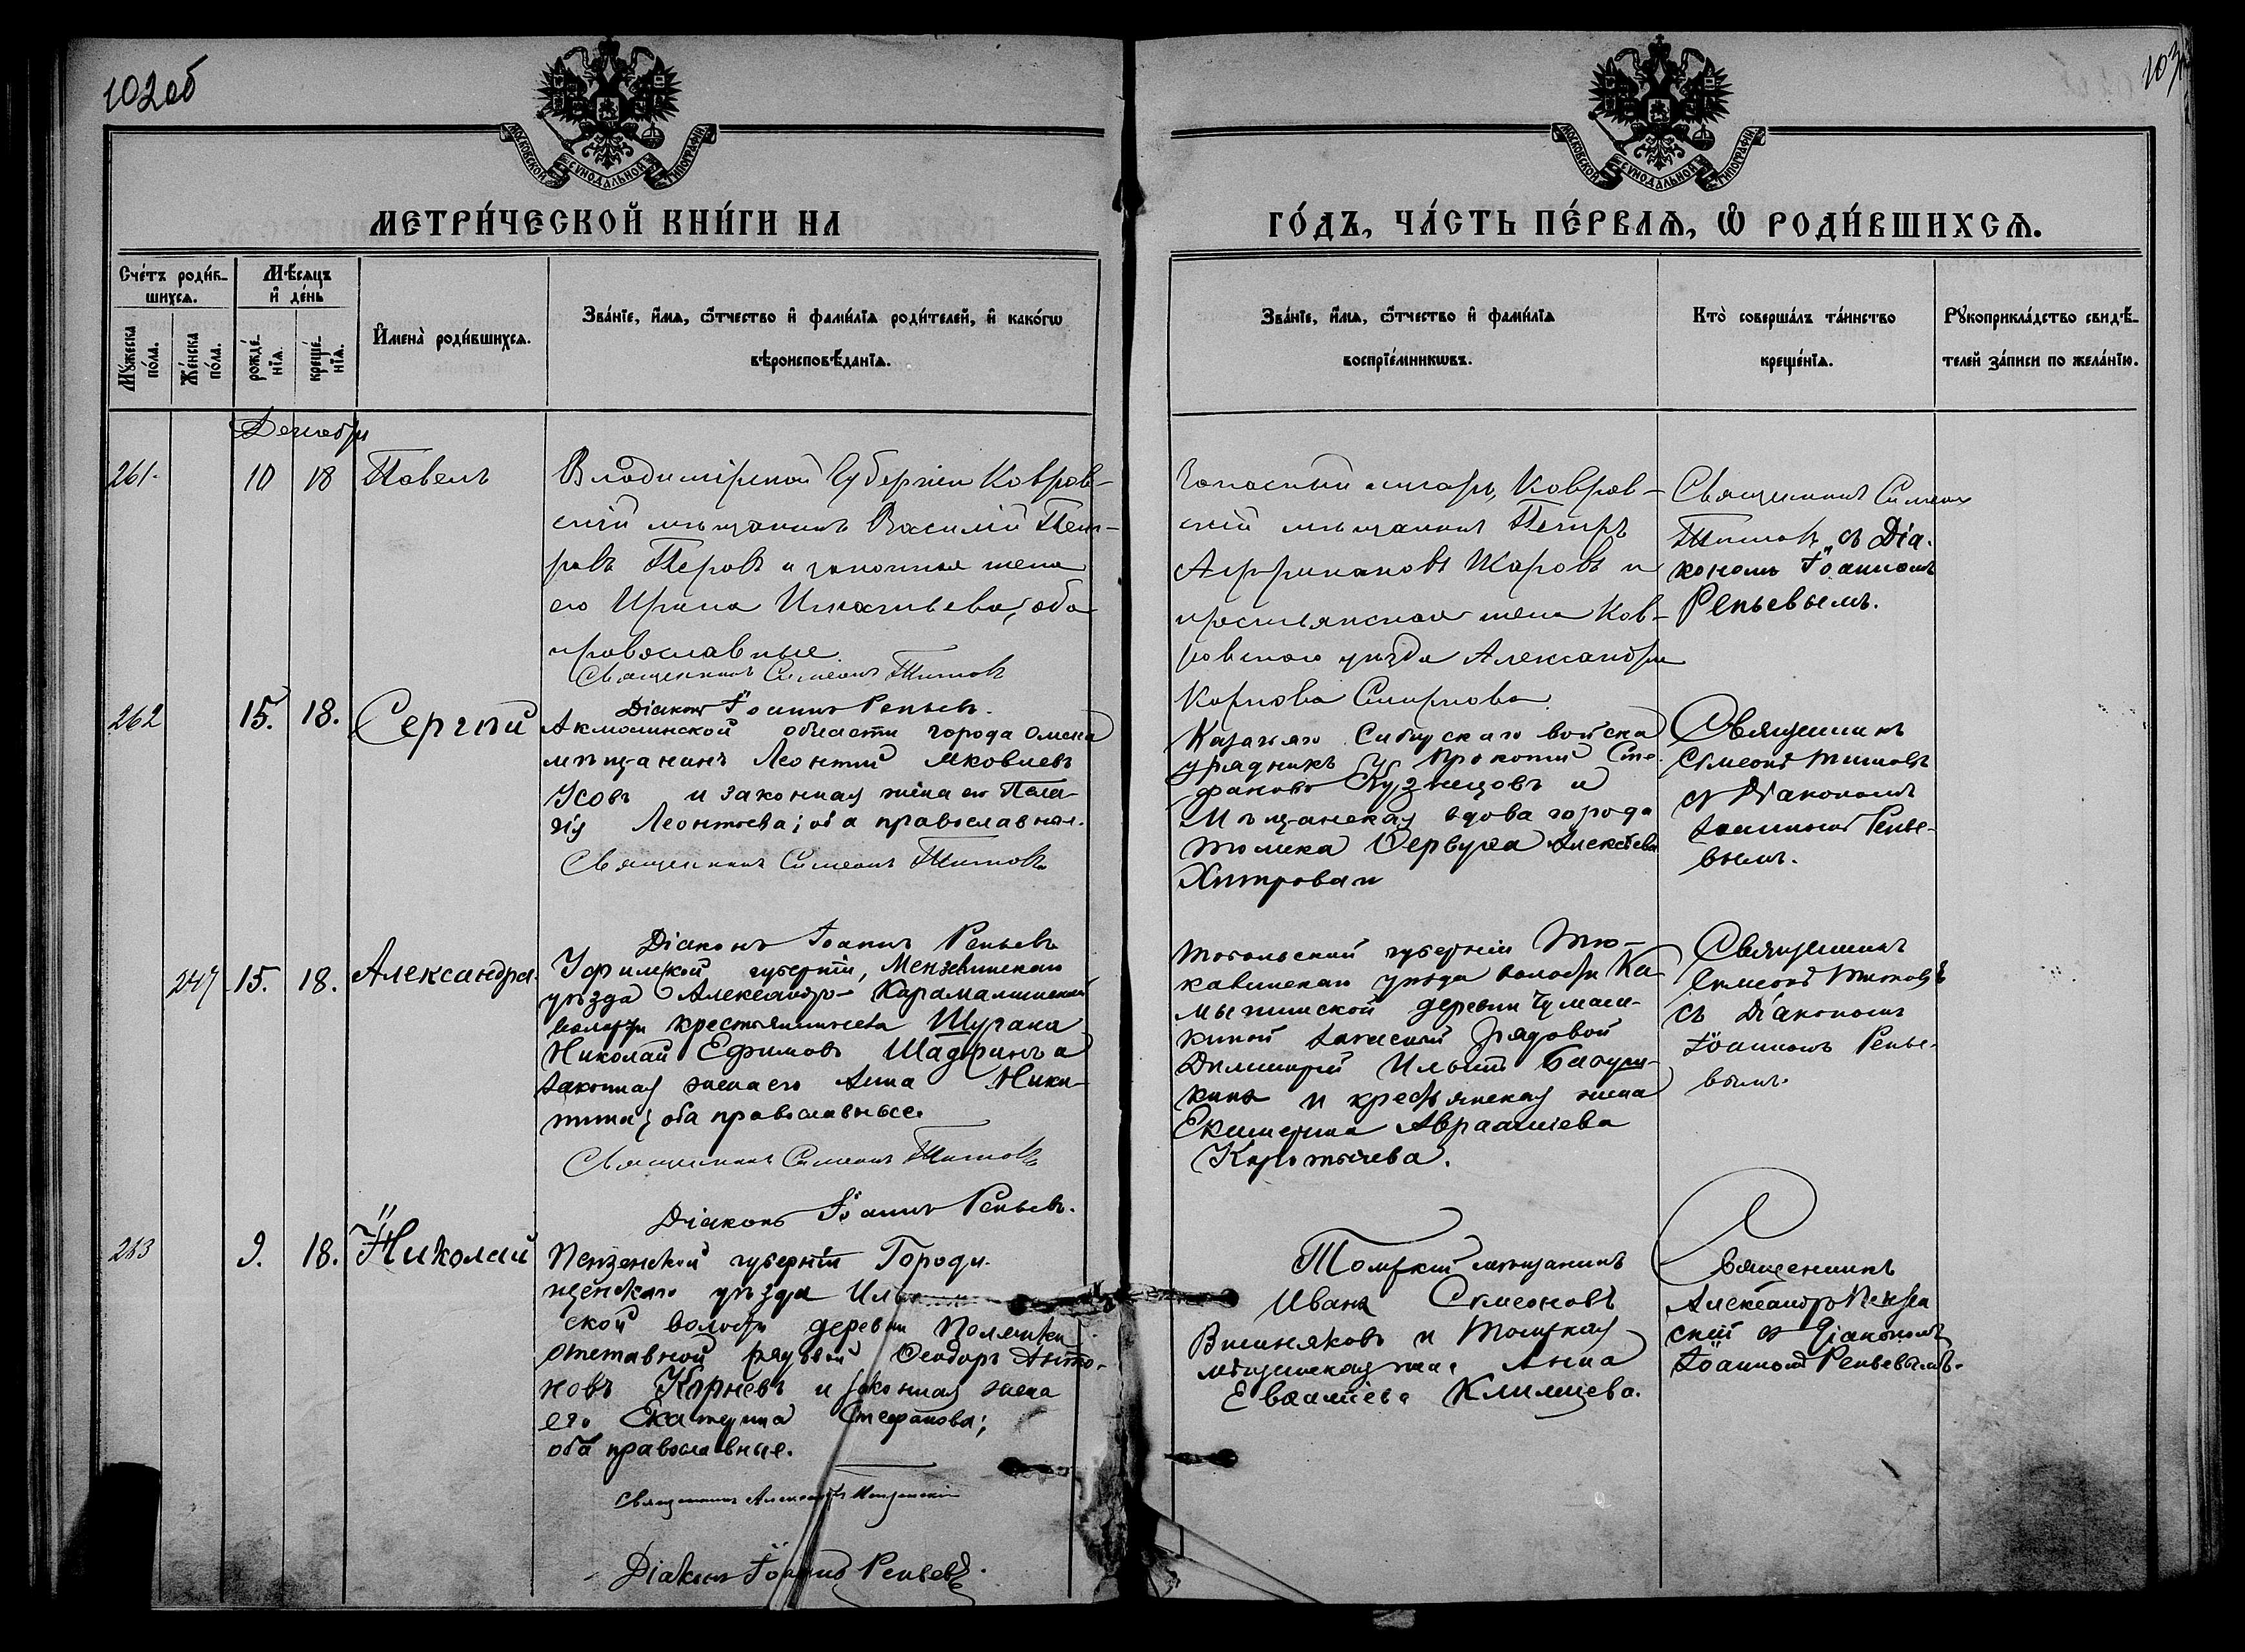 102об
103
МОСКОВСКОЙ СѴНОДАЛЬНОЙ ТИПОГРАФІИ
МОСКОВСКОЙ СѴНОДАЛЬНОЙ ТИПОГРАФІИ
МЕТРИ́ЧЕСКОЙ КНИ́ГИ НА
ГО́ДЪ, ЧА́СТЬ ПЕ́РВАѦ, Ѡ҆ РОДИ́ВШИХСѦ.
Сче́тъ роди́в-
шихсѧ.
Мѣ́сѧцъ
и҆ де́нь
Мꙋ́жеска
по́ла.
Же́нска
по́ла.
рожде́-
нїѧ.
креще́-
нїѧ.
И҆мена̀ роди́вшихсѧ.
Зва́нїе, и҆́мѧ, ѻ҆́тчество и҆ фами́лїѧ роди́телей, и҆ како́гѡ
вѣроисповѣ́данїѧ.
Зва́нїе, и҆́мѧ, ѻ҆́тчество и҆ фами́лїѧ
воспрїе́мникѡвъ.
Кто̀ соверша́лъ та́инство
креще́нїѧ.
Рꙋкоприкла́дство свидѣ́-
телей за́писи по жела́нїю.
Декабрь
261.
10
18
Павелъ
Владимірской Губерніи Ковров-
скій мѣщанинъ Василій Пет-
ровъ Перовъ и законная жена
его Ирина Игнатьева, оба
православные
Священникъ Симеонъ Титовъ
Діаконъ Іоаннъ Репьевъ.
Ковров-
скій мѣщанинъ Петръ
Африкановъ Жаровъ и
крестьянская жена Ков-
ровскаго уѣзда Александра
Карпова Смирнова
Священникъ Симеонъ
Титовъ съ Діа-
кономъ Іоанномъ
Репьевымъ.
262
15.
18.
Сергій
Акмолинской области города Омска
мѣщанинъ Леонтій Яковлевъ
Усовъ и законная жена его Пела-
гія Леонтьева; оба православные.
Священникъ Симеонъ Титовъ
Діаконъ Іоаннъ Репьевъ
Казачьяго Сибирскаго войска
урядникъ Прокопій Сте-
фановъ Кузнецовъ и
Мѣщанская вдова города
Томска Алексѣева
Хитрова
Священникъ
Симеонъ Титовъ
съ Діакономъ
Іоанномъ Репье-
вымъ.
247
15.
18.
Александра.
Уфимской губерніи, Мензелинскаго
уѣзда Александро-Карамалинской
волости крестьянинъ села Шугана
Николай Ефимовъ Шадринъ и
законная жена его Анна Ники-
тина; оба православные.
Священникъ Симеонъ Титовъ
Діаконъ Іоаннъ Репьевъ.
Тобольской губерніи Тю-
калинскаго уѣзда волости Ка-
мышинской деревни
запасный рядовой
Димитрій Ильинъ Бабуш-
кинъ и крестьянская жена
Екатерина Авраамиева
Коротычева.
Священникъ
Симеонъ Титовъ
съ Діакономъ
Іоанномъ Репье-
вымъ.
263
9.
18.
Николай
Пензенской губерніи Городи-
щенскаго уѣзда
ской волости деревни
отставной рядовой Ѳеодоръ Анто-
новъ Корневъ и законная жена
его Екатерина Стефанова;
оба православные.
Священникъ Александръ Пензенскій
Діаконъ Іоаннъ Репьевъ.
Томскій мѣщанинъ
Иванъ Симеоновъ
Вишняковъ и Томская
мѣщанская жена Анна
Климцева.
Священникъ
Александръ Пензен
скій съ Діакономъ
Іоанномъ Репьевымъ.